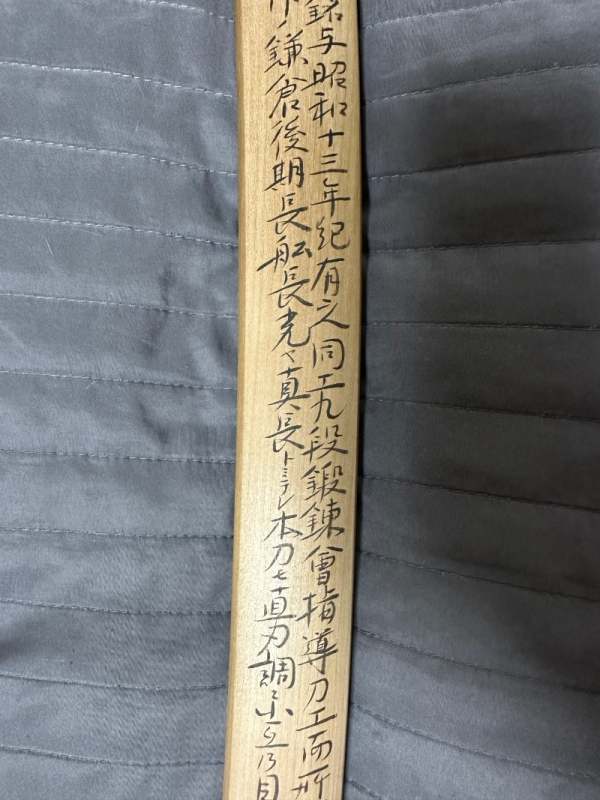 銘与昭和十三年紀有之同工九段鍛錬會指導刀工而所
鎌倉後期長船長光々真長ト本刀モ直刃調ニ小互乃目